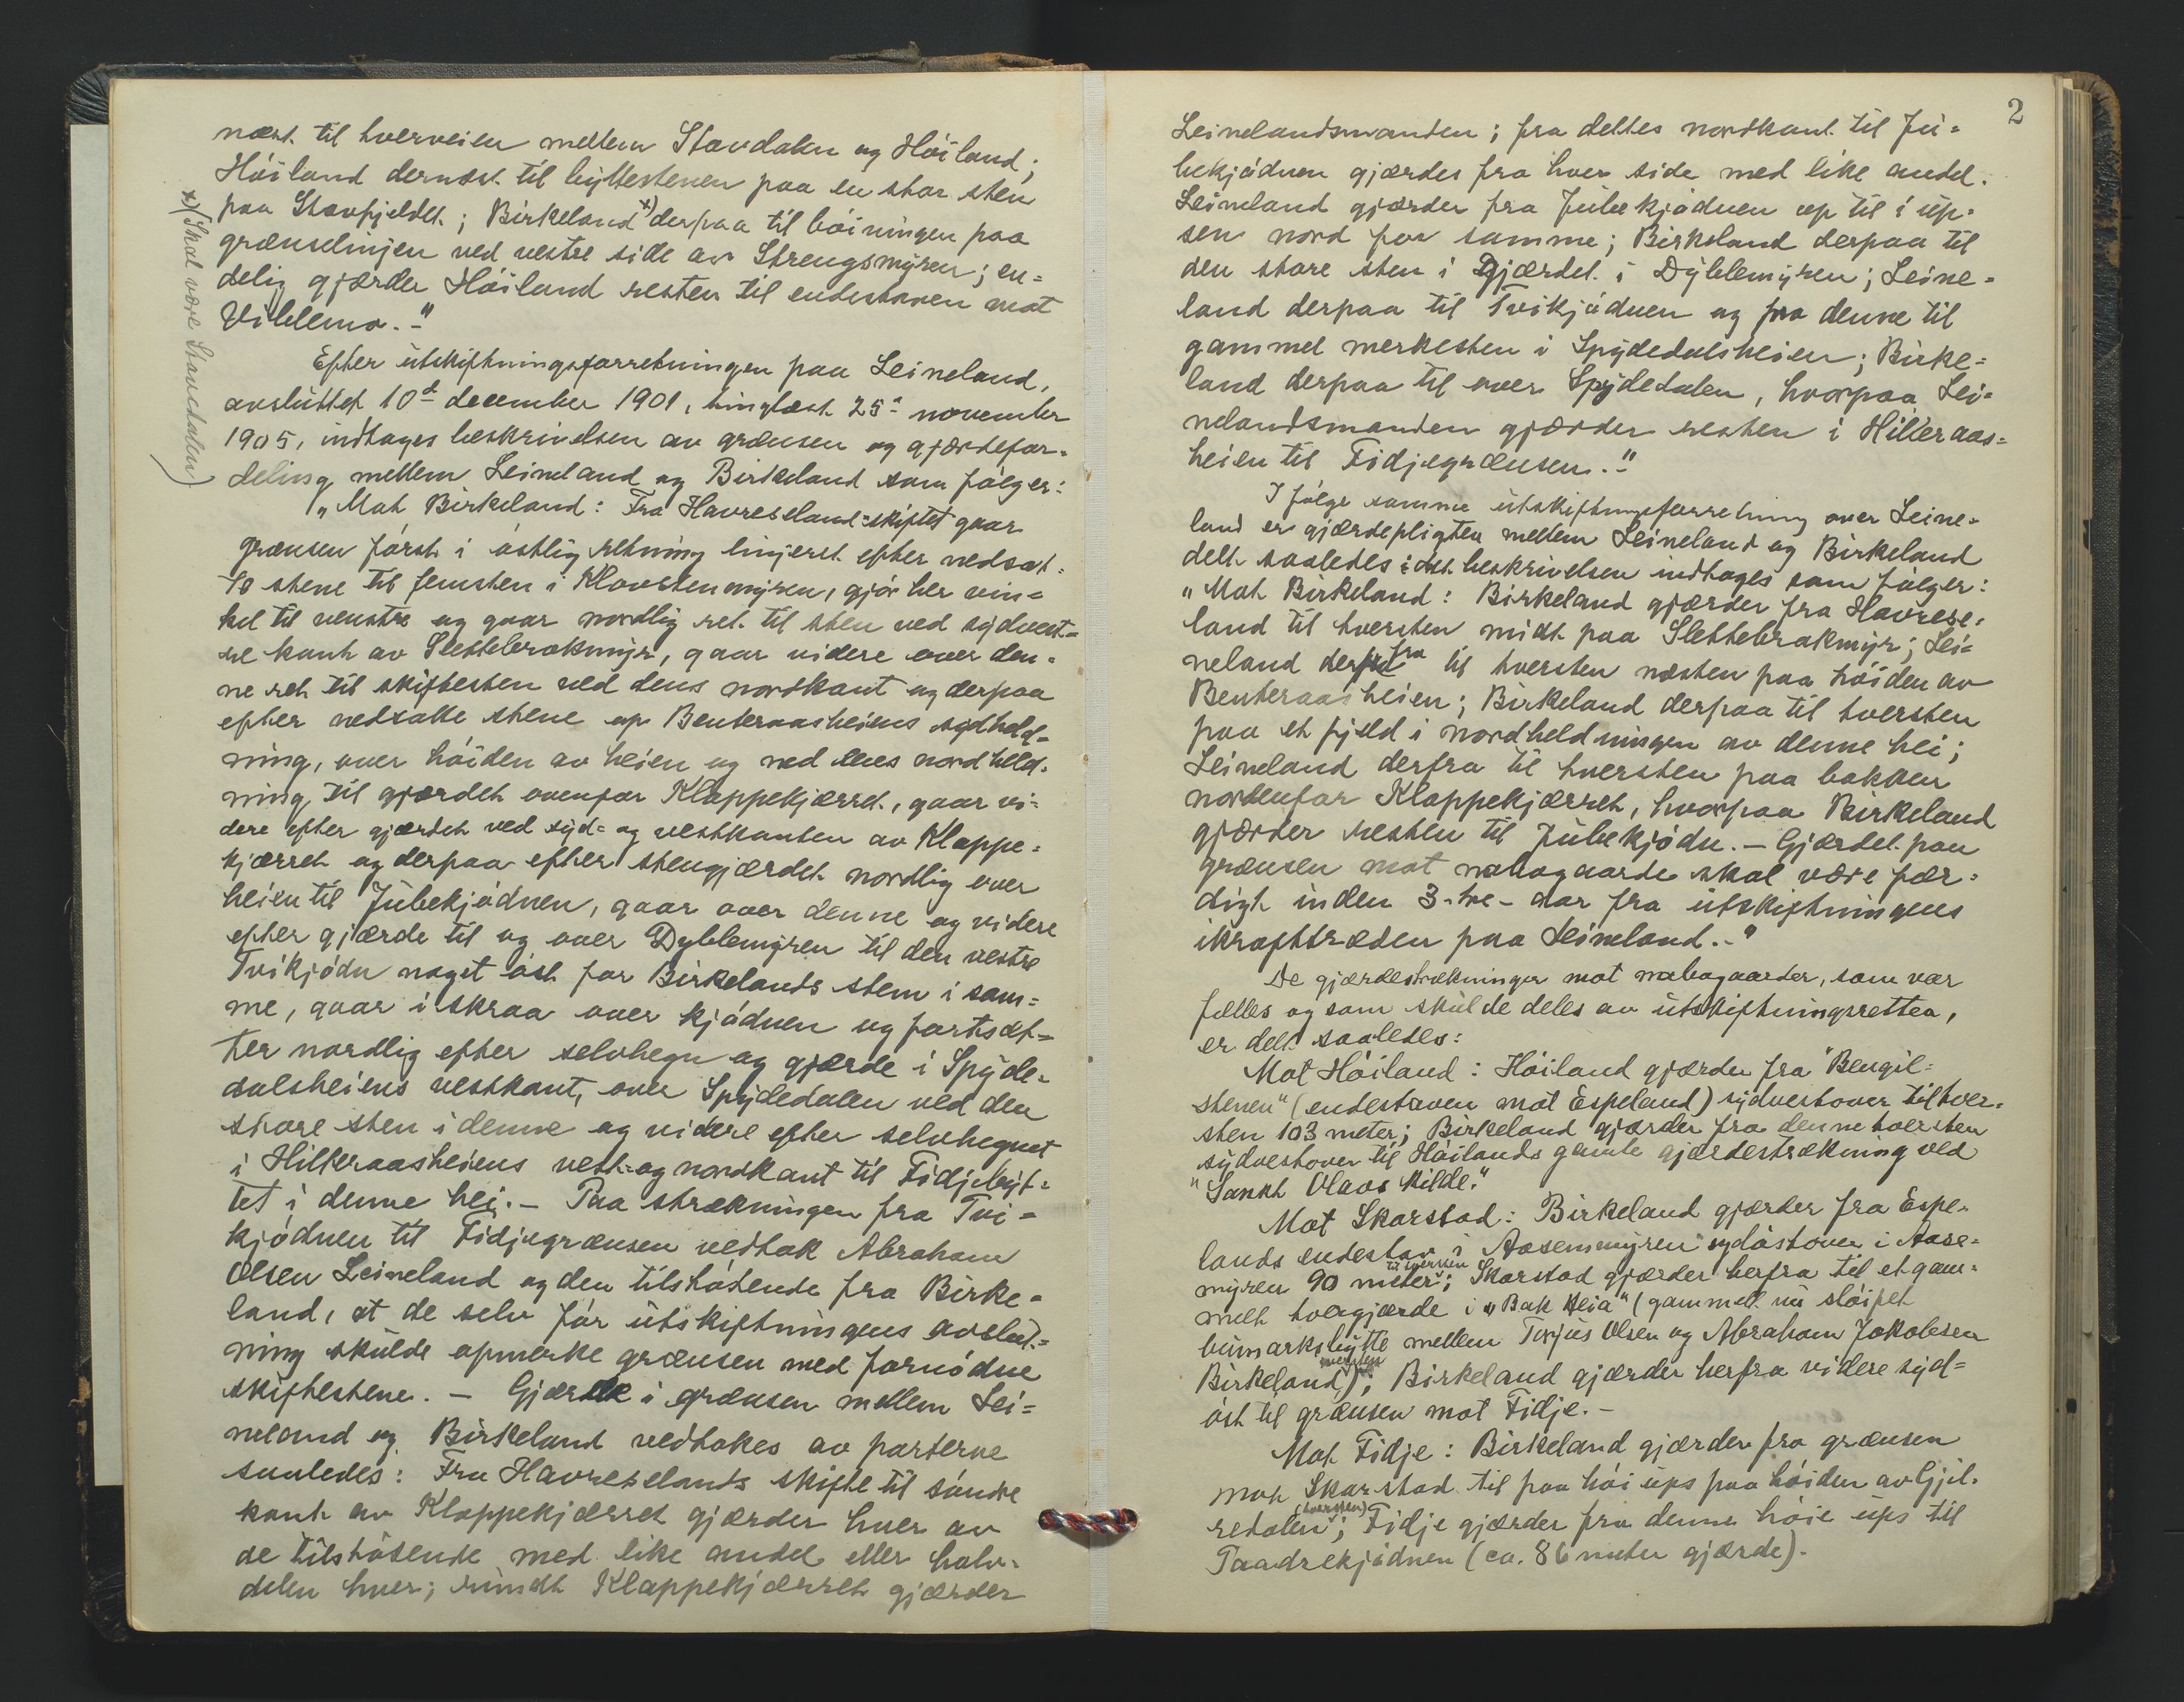 næst til tverveien mellem Stavdalen og Höiland;
Höiland dernæst til byttestenen paa en stor sten
paa Stavfjeldet; Birkeland x) derpaa til böiningen paa
grænselinjen ved vestre side av Strengsmyren; en=
delig gjærder Höiland resten til endestaven mot
Viblemo."
x) (Skal være Stavdalen)
Efter utskiftningsforretningen paa Leineland,
avsluttet 10d december 1901, tinglæst 25d november
1905, indtages beskrivelsen av grænsen og gjærdefor=
deling mellem Leineland og Birkeland som fölger:
"Mot Birkeland: Fra Havreseland=skiftet gaar
grænsen först i östlig retning linjeret efter nedsat=
te stene til femsten i Klovstenmyren, gjör her vin=
kel til venstre og gaar nordlig ret til sten ved sydvest=
re kant av Slettebrokmyr, gaar videre over den=
ne ret til skiftesten ved dens nordkant og derpaa
efter nedsatte stene op Benteraasheiens sydheld=
ning, over höiden av heien og ned dens nordheld=
ning til gjærdet ovenfor Klappekjærret, gaar vi=
dere efter gjærdet ved syd= og vestkanten av Klappe=
kjærret og derpaa efter stengjærdet nordlig over
heien til Jubekjödnen, gaar over denne og videre
efter gjærde til og over Dyblemyren til den vestre
Tvikjödn noget öst for Birkelands stem i sam=
me, gaar i skraa over kjödnen og fortsæt=
ter nordlig efter selvhegn og gjærde i Spyde=
dalsheiens vestkant, over Spydedalen ved den
store sten i denne og videre efter selvhegnet
i Hilleraasheiens vest=og nordkant til Fidjebyt=
tet i denne hei. – Paa strækningen fra Tvi=
kjödnen til Fidjegrænsen vedtok Abraham
Olsen Leineland og den tilstötende fra Birke=
land, at de selv för utskiftningens avslut=
ning skulde opmerke grænsen med fornödne
skiftestene. – Gjærde i grænsen mellem Lei=
neland og Birkeland vedtokes av parterne
saaledes: Fra Havreselands skifte til söndre
kant av Klappekjærret gjærder hver av
de tilstötende med like andel eller halv=
delen hver; rundt Klappekjærret gjærder
2
Leinelandsmanden; fra dettes nordkant til Ju=
bekjödnen gjærdes fra hver side med like andel.
Leineland gjærder fra Jubekjödnen op til i up=
sen nord for samme; Birkeland derpaa til
den store sten i gjærdet i Dyblemyren; Leine=
land derpaa til Tvikjödnen og fra denne til
gammel merkesten i Spydedalsheien; Birke=
land derpaa til over Spydedalen, hvorpaa Lei=
nelandsmanden gjærder resten i Hilleraas=
heien til Fidjegrænsen."
I fölge samme utskiftningsforretning over Leine=
land er gjærdepligten mellem Leineland og Birkeland
delt saaledes idet beskrivelsen indtages som fölger:
"Mot Birkeland: Birkeland gjærder fra Havrese=
land til tversten midt paa Slettebrokmyr; Lei=
neland derfra til tversten næsten paa höiden av
Benteraasheien; Birkeland derpaa til tversten
paa et fjeld i nordheldningen av denne hei;
Leineland derfra til tversten paa bakken
nordenfor Klappekjærret, hvorpaa Birkeland
gjærder resten til Jubekjödn. – Gjærdet paa
grænsen mot nabogaarde skal være fær=
digt inden 3-tre- aar fra utskiftningens
ikrafttræden paa Leineland."
De gjærdestrækninger mot nabogaarder, som var
fælles og som skulde deles av utskiftningsretten,
er delt saaledes:
Mot Höiland: Höiland gjærder fra "Bengil=
stenen" (endestaven mot Espeland) sydvestover til tver=
sten 103 meter; Birkeland gjærder fra denne tversten
sydvestover til Höilands gamle gjærdestrækning ved
"Sankt Olavs Kilde."
Mot Skarstad: Birkeland gjærder fra Espe=
lands endestav i Aasemmyren sydöstover i Aase=
myren 90 meter til tversten; Skarstad gjærder herfra til et gam=
melt tvergjærde i "Bak Heia" (gammelt nu slöifet
bumarksbytte mellem Terjus Olsen og Abraham Jakobsen
Birkeland) tversten; Birkeland gjærder herfra videre syd=
öst til grænsen mot Fidje. –
Mot Fidje: Birkeland gjærder fra grænsen
mot Skarstad til paa höi ups paa höiden av Gjil=
redalen (tversten); Fidje gjærder fra denne höie ups til
Paadrekjödnen (ca. 86 meter gjærde).